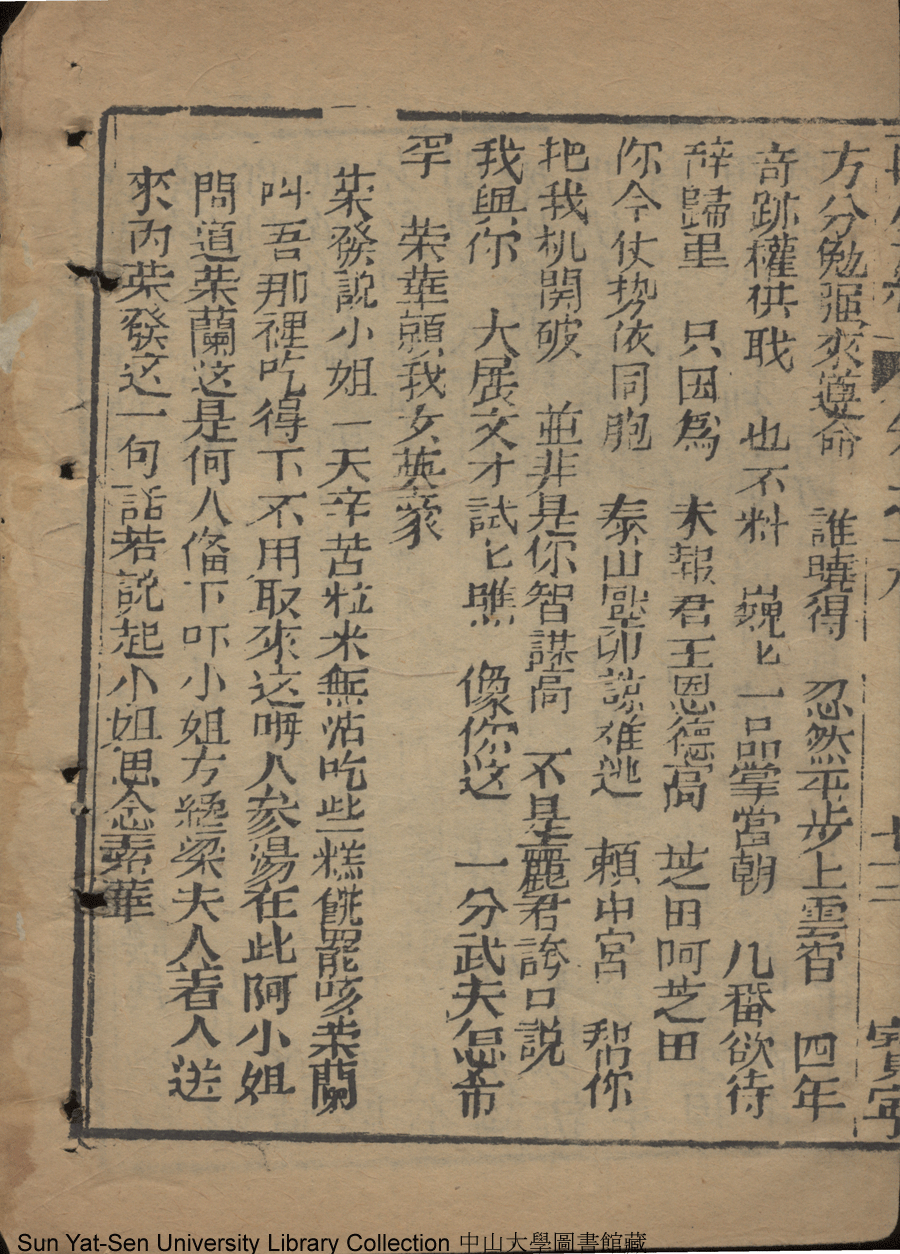 方分勉强來遵命 誰曉得 忽然平步上雲霄 四年
奇跡權供職 也不料 巍匕一品掌當朝 几番欲待
辞歸里 只因爲 未報君王恩德高 芝田阿芝田
你今仗势依同胞 泰山壓卵諒难逃 頼中宮 帮你
把我机関破 並非是你智謀高 不是麗君誇口説
我與你 大展文才試匕瞧 像你这 一分武夫怎希
罕 荣華願我女英豪
荣發説小姐一天辛苦粒米無沾吃些糕餅罷咳荣蘭
叫吾那裡吃得下不用取來这呀人参湯在此阿小姐
問道荣蘭这是何人俻下吓小姐方纔梁夫人着人送
來的荣發这一句話若説起小姐思念素華
七十二
寳寧
Sun Yat-Sen University Library Collection 中山大學圖書館藏